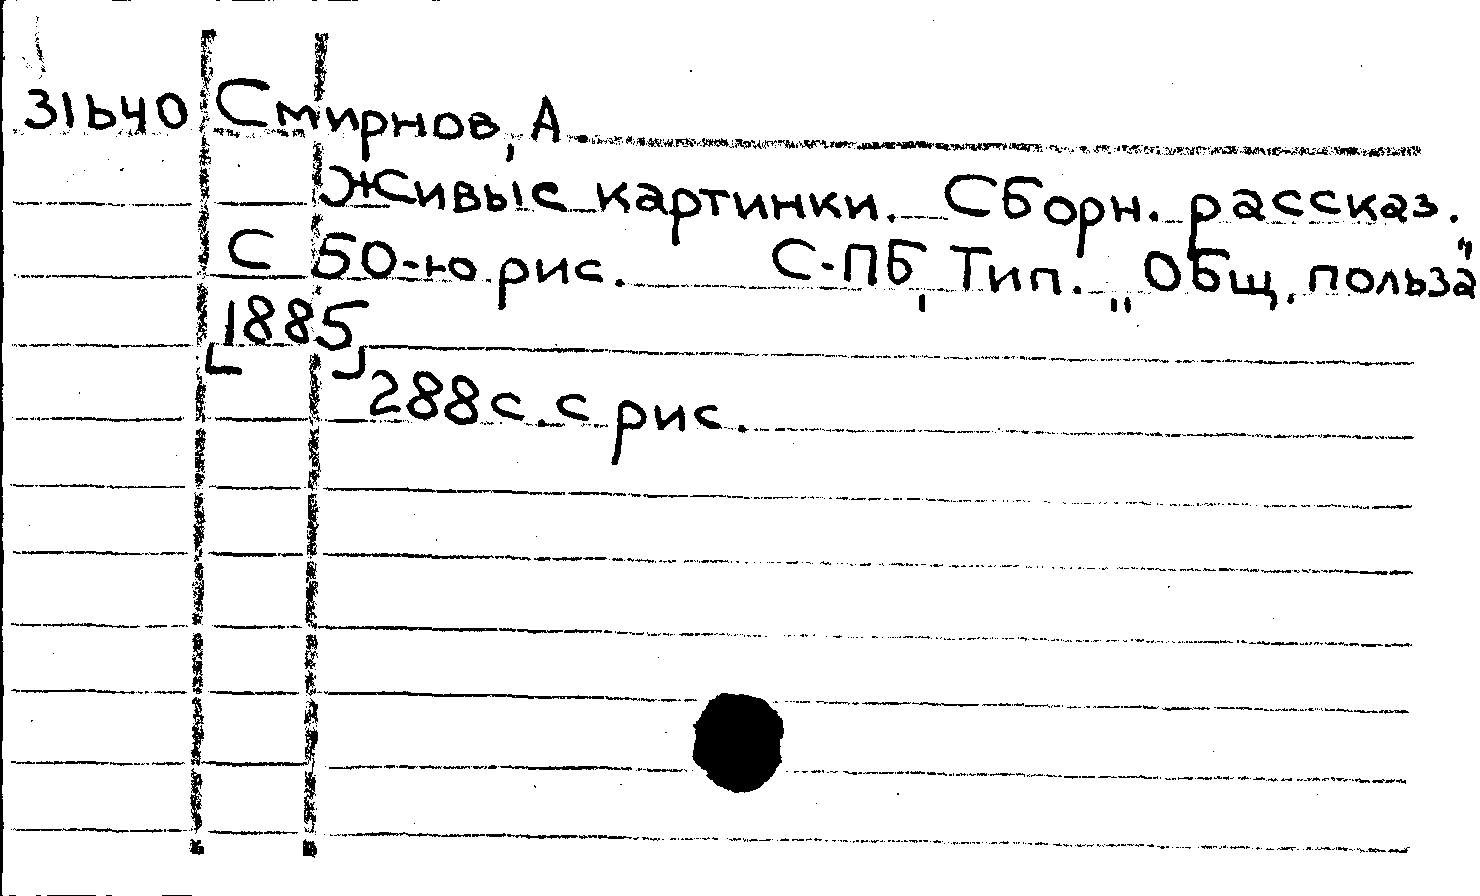 31640 Смирнов, А.
Живые картинки. Сборн. рассказ.
С 50-ю рис. С-ПБ, Тип. „Общ. польза"
[1885]
288 с. с рис.